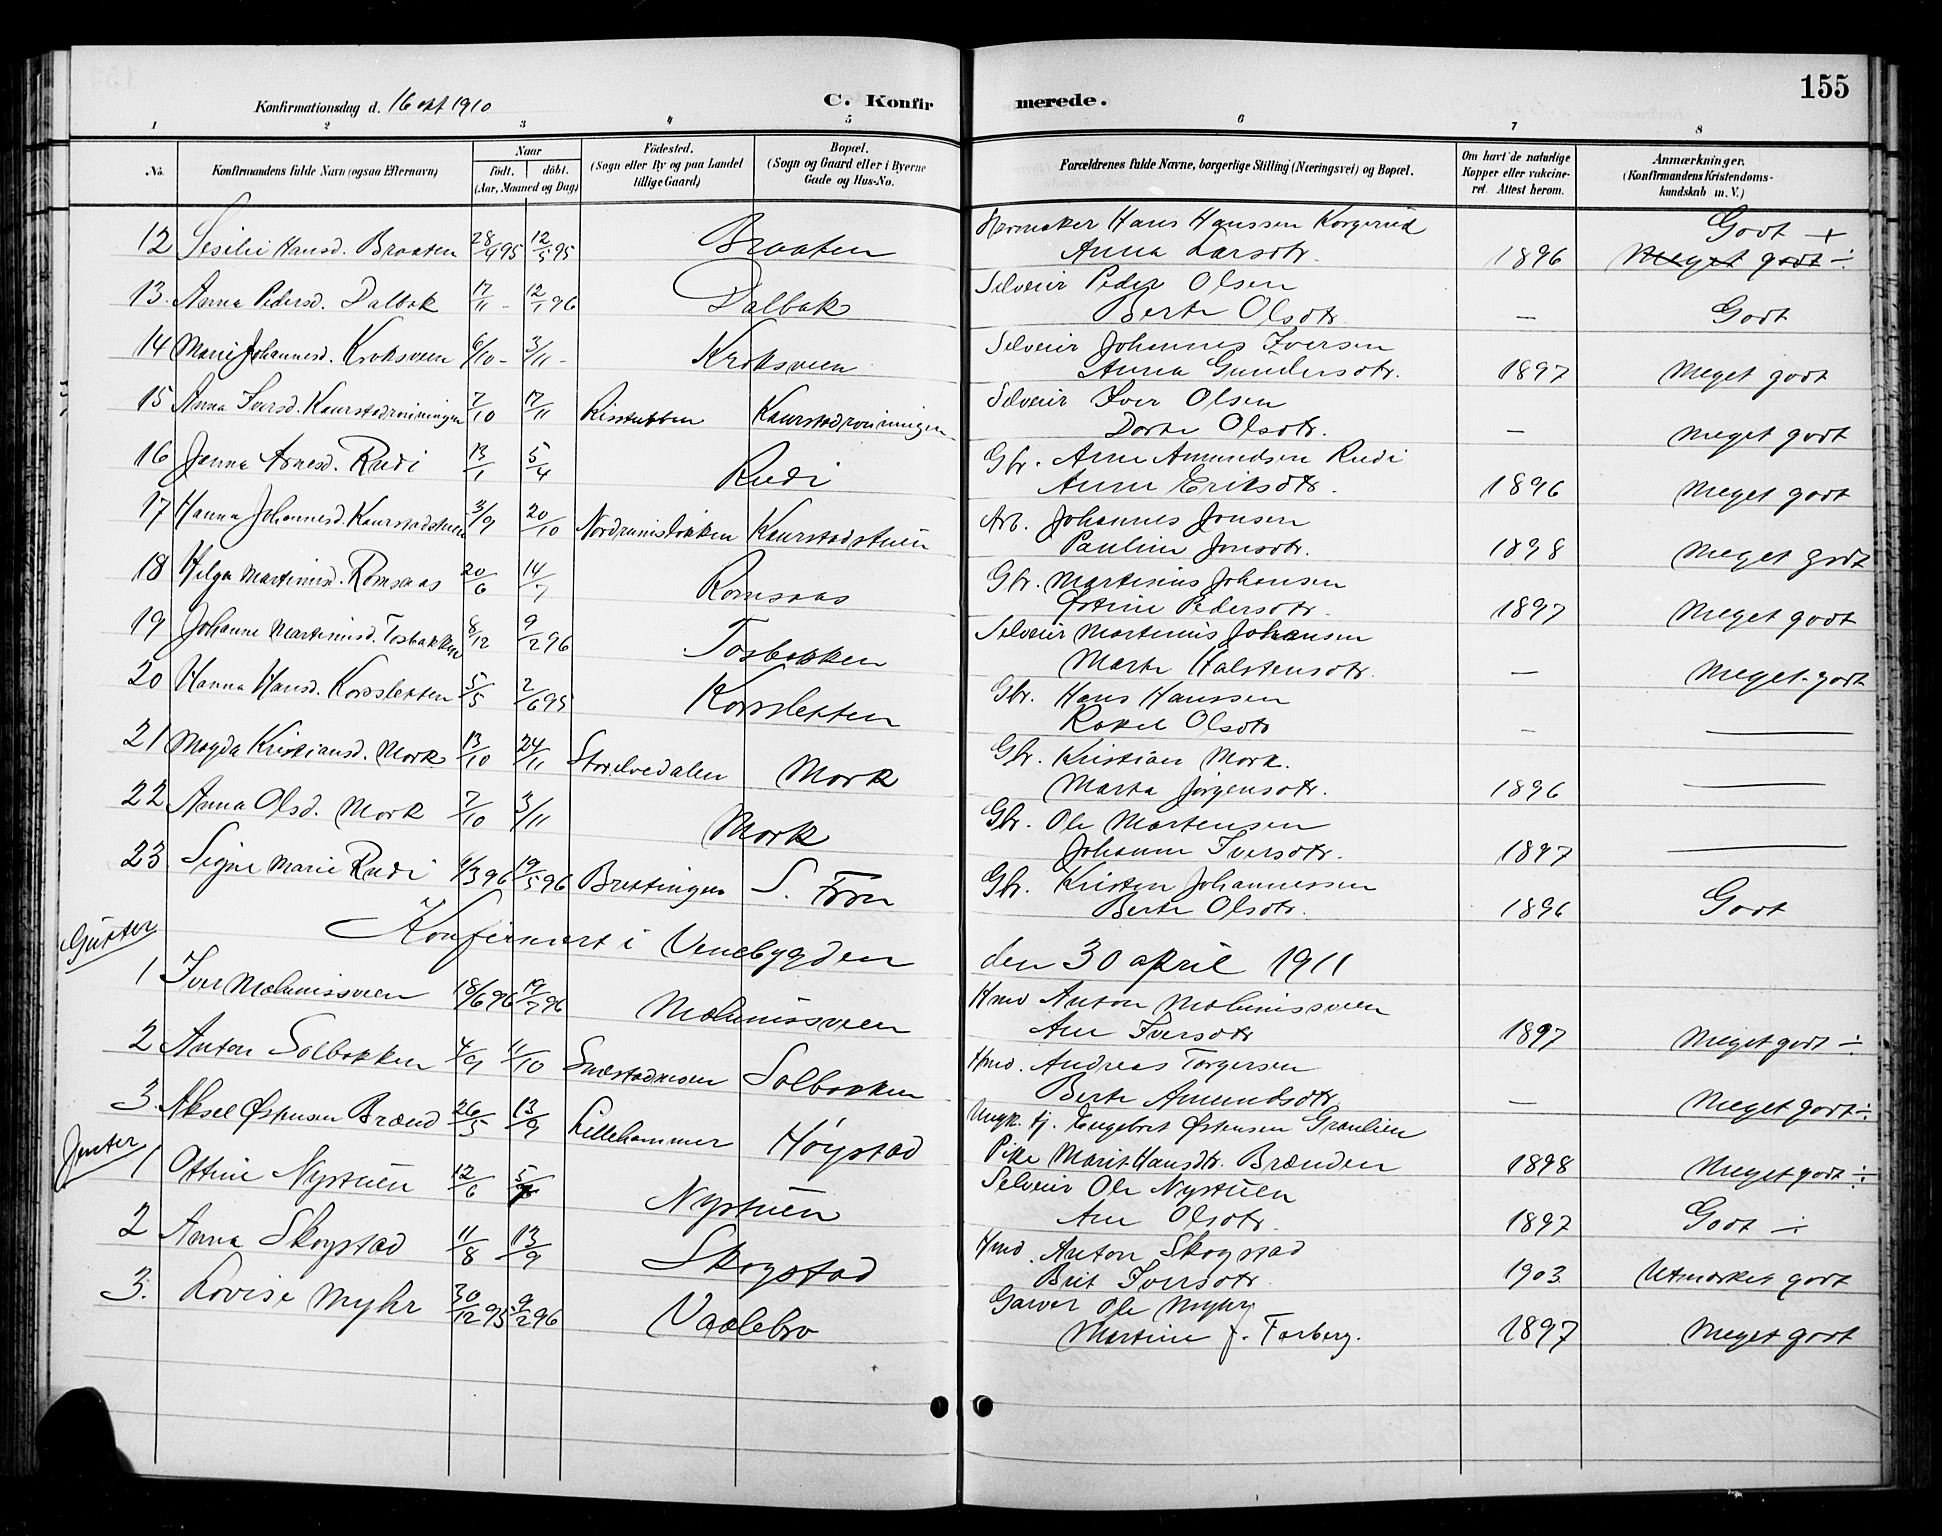 155
Konfirmationsdag d. 16 okt 1910
C. Konfirmerede.
1 2 3 4 5 6 7 8
No. Konfirmandens fulde Navn (ogsaa Efternavn) Naar født. døbt. (Aar, Maaned og Dag) Fødested. (Sogn eller By og paa Landet tillige Gaard) Bopæl. (Sogn og Gaard eller i Byerne Gade og Hus-No. Forældrenes fulde Navne, borgerlige Stilling (Næringsvei) og Bopæl. Om havt de naturlige Kopper eller vakcineret. Attest herom. Anmærkninger. (Konfirmandens Kristendomskundskab m. V.)
12 Sesilie Hansd. Braaten 28/4 95 12/5 95 Braaten Hans Hanssen Korgerud Godt +
Anna Larsdtr. 1896 Meget godt ÷
13. Anna Pedersd. Dalbak 17/11 - 12/1 96 Dalbak Selveier Peder Olsen
Berte Olsdtr. — Godt
14 Marie Johannesd. Kroksveen 6/10 - 3/11 - Kroksveen Selveier Johannes Iversen
Anna Gundersdtr. 1897 Meget godt
15 Anna Iversd. Kaurstadvinningen 7/10 17/11 Risstubben Kaurstadvinningen Selveier Iver Olsen
Dorte Olsdtr. — Meget godt
16 Janna Arnesd. Rudi 13/1 5/4 Rudi Gbr. Arne Amundsen Rudi
Anne Eriksdtr. 1896 Meget godt
17 Hanna Johannesd. Kaurstadstuen 3/9 20/10 Nordrumsløkken Kaurstadstuen Arb. Johannes Jonsen
Pauline Jonsdtr. 1898 Meget godt
18 Helga Martinusd. Romsaas 20/6 14/7 Romsaas Gbr. Martinius Johansen
Østine Pedersdtr. 1897 Meget godt
19 Johanne Martinusd. Tosbakken 8/12 9/2 96 Tosbakken Selveier Martinius Johansen
Marte Halstensdtr. — Meget godt
20 Hanna Hansd. Korssletten 5/5 2/6 95 Korssletten Gbr. Hans Hanssen
Rakel Olsdtr — —
21 Magda Kristiansd. Mork 13/10 24/11 Storelvedalen Mork Gbr. Kristian Mork.
Marta Jørgensdtr. 1896 —
22 Anna Olsd. Mork 7/10 3/11 Mork Gbr. Ole Martensen
Johanne Iversdtr. 1897 —
23 Signe Marie Rudi 4/3 96 19/5 96 Brettingen S. Fron Gbr. Kristen Johannessen
Berte Olsdtr. 1896 Godt
Konfirmert i Venebygden den 30 april 1911
Gutter
1 Iver Mælumssveen 18/6 96 19/7 96 Mælumssveen Hmd Anton Mælumssveen
Ane Iversdtr 1897 Meget godt ÷
2 Anton Solbakken 4/9 11/10 Solbakken Hmd. Andreas Torgersen
Berte Amundsdtr — Meget godt ÷
3. Aksel Østensen Brænd 26/5 13/9 Lillehammer Høystad Ungk. tj. Engebret Østensen Graulien
Pike Marit Hansdtr. Brænden 1898 Meget godt ÷
Jenter
1 Ottine Nystuen 12/6 Nystuen Selveier Ole Nystuen
Ane Olsdtr. 1897 Godt ÷
2 Anna Skogstad 11/8 13/9 Skogstad Hmd. Anton Skogstad
Brit Iversdtr. 1903 Utmærket godt
3. Lovise Myhr 30/12 95 9/2 96 Vaalebro Garver Ole Myhr
Martine J. Forberg. 1897 Meget godt